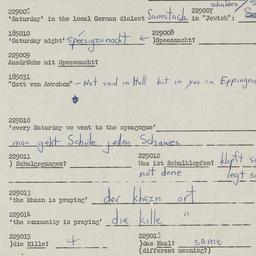 schabbes
229006 229007
'Saturday' in the local German dialect Samstach in "Jewish":
185010 229008
'Saturday night' Speesigzunacht ← )Speesnacht?
229009
Ausdrücke mit Speesnacht?
185031
"Gott von Awrohom" – Not said in Hall but in yes in Eppingen
229010
'every Saturday we went to the synagogue'
man geht Schule jeden Schawes
229011 229012
) Schulgegangen? Was ist Schulklopfen? klopft
not done legt
229013
'the khazn is praying' der khazn ort
229014
'the community is praying' die kille "
229015 229016
)die Kille? + )das Kaal? same
(different meaning?)